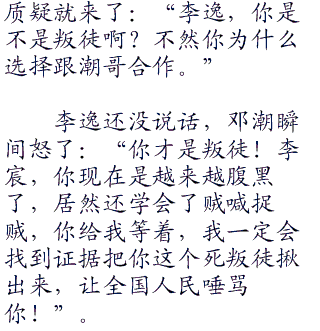 质疑就来了：“李逸，你是
不是叛徒啊？不然你为什么
选择跟潮哥合作。”
李逸还没说话，邓潮瞬
间怒了：“你才是叛徒！李
宸，你现在是越来越腹黑
了，居然还学会了贼喊捉
贼，你给我等着，我一定会
找到证据把你这个死叛徒揪
出来，让全国人民唾骂
你！”。